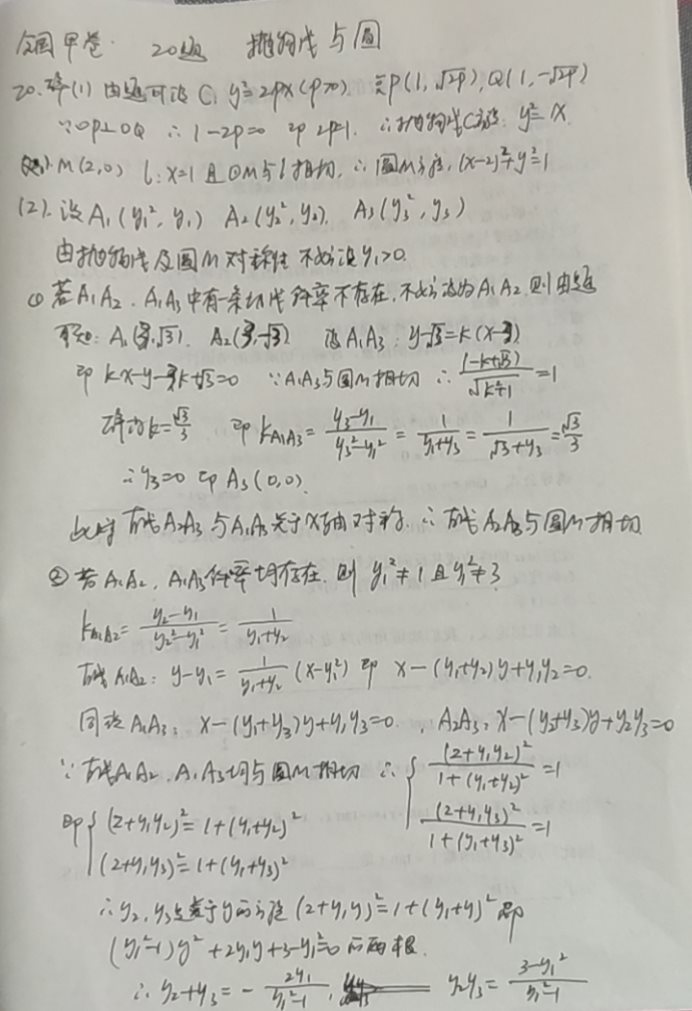 全国甲卷. 20题 抛物线与圆
20.解(1) 由题可设 C: y²=2px(p>0). 点P(1,√2p), Q(1,-√2p)
∵OP⊥OQ ∴1-2p=0 即2p=1. ∴抛物线C方程: y²=x.
M(2,0) l:x=1 且⊙M与l相切, ∴圆M方程: (x-2)²+y²=1
(2). 设A₁(y₁², y₁) A₂(y₂², y₂). A₃(y₃², y₃)
由抛物线及圆M对称性 不妨设y₁>0.
① 若A₁A₂. A₁A₃中有一条切线斜率不存在, 不妨设为A₁A₂. 则由题
可知: A₁(3,√3). A₂(3,-√3) 设A₁A₃: y-√3=k(x-3)
即 kx-y-3k+√3=0 ∵A₁A₃与圆M相切 ∴|-k+√3|/√(k²+1)=1
解为k=√3/3 即 k_{A₁A₃}=(y₃-y₁)/(y₃²-y₁²)=1/(y₁+y₃)=1/(√3+y₃)=√3/3
∴y₃=0 即A₃(0,0).
此时 直线A₂A₃与A₁A₃关于x轴对称. ∴直线A₂A₃与圆M相切.
② 若A₁A₂, A₁A₃斜率均存在. 则 y₁²≠1且y₁²≠3.
k_{A₁A₂}=(y₂-y₁)/(y₂²-y₁²)=1/(y₁+y₂)
直线A₁A₂: y-y₁=1/(y₁+y₂)(x-y₁²) 即 x-(y₁+y₂)y+y₁y₂=0.
同设A₁A₃: x-(y₁+y₃)y+y₁y₃=0. A₂A₃: x-(y₂+y₃)y+y₂y₃=0
∵直线A₁A₂. A₁A₃均与圆M相切 ∴{(2+y₁y₂)²/(1+(y₁+y₂)²)=1
(2+y₁y₃)²/(1+(y₁+y₃)²)=1
即{(2+y₁y₂)²=1+(y₁+y₂)²
(2+y₁y₃)²=1+(y₁+y₃)²
∴y₂, y₃是关于y的方程(2+y₁y)²=1+(y₁+y)²即
(y₁²-1)y²+2y₁y+3-y₁²=0的两根.
∴y₂+y₃=-2y₁/(y₁²-1), y₂y₃=(3-y₁²)/(y₁²-1)